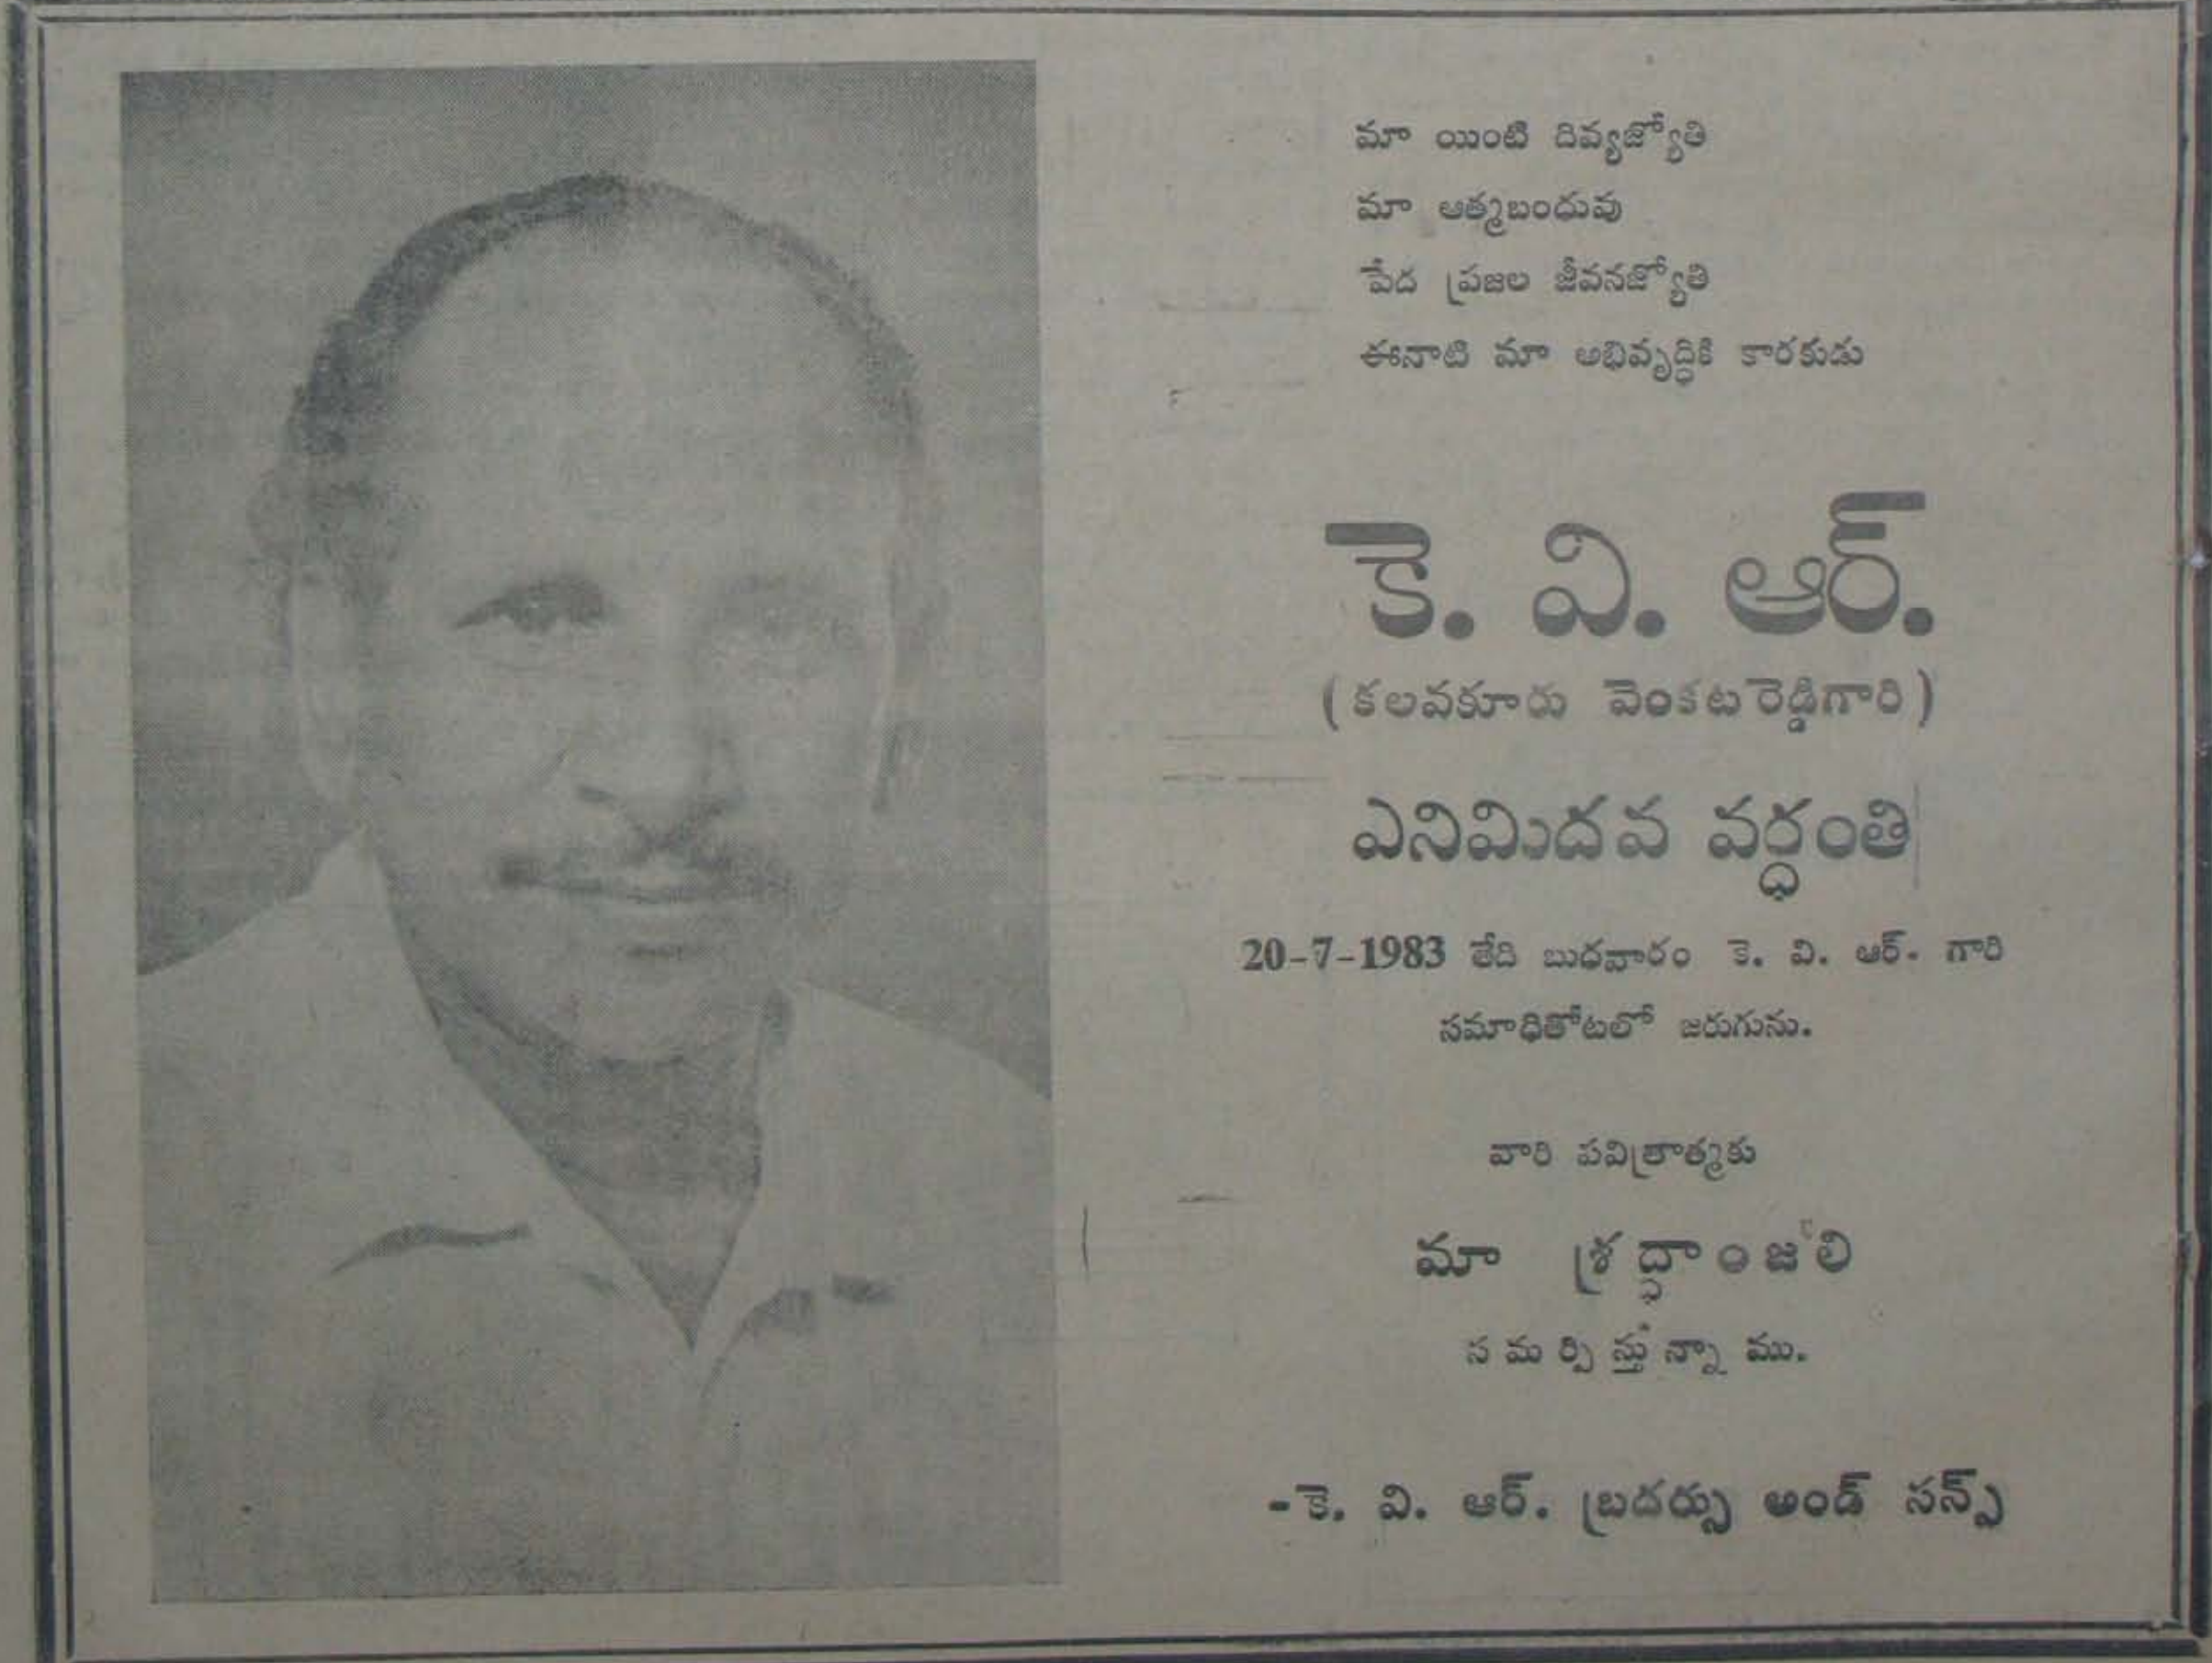 మా యింటి దివ్యజ్యోతి
మా ఆత్మబంధువు
పేద ప్రజల జీవనజ్యోతి
ఈనాటి మా అభివృద్ధికి కారకుడు
కె. వి. ఆర్.
(కలవకూరు వెంకటరెడ్డిగారి)
ఎనిమిదవ వర్ధంతి
20-7-1983 తేది బుధవారం కె. వి. ఆర్. గారి
సమాధితోటలో జరుగును.
వారి పవిత్రాత్మకు
మా శ్రద్ధాంజలి
సమర్పిస్తున్నాము.
-కె. వి. ఆర్. బ్రదర్సు అండ్ సన్స్